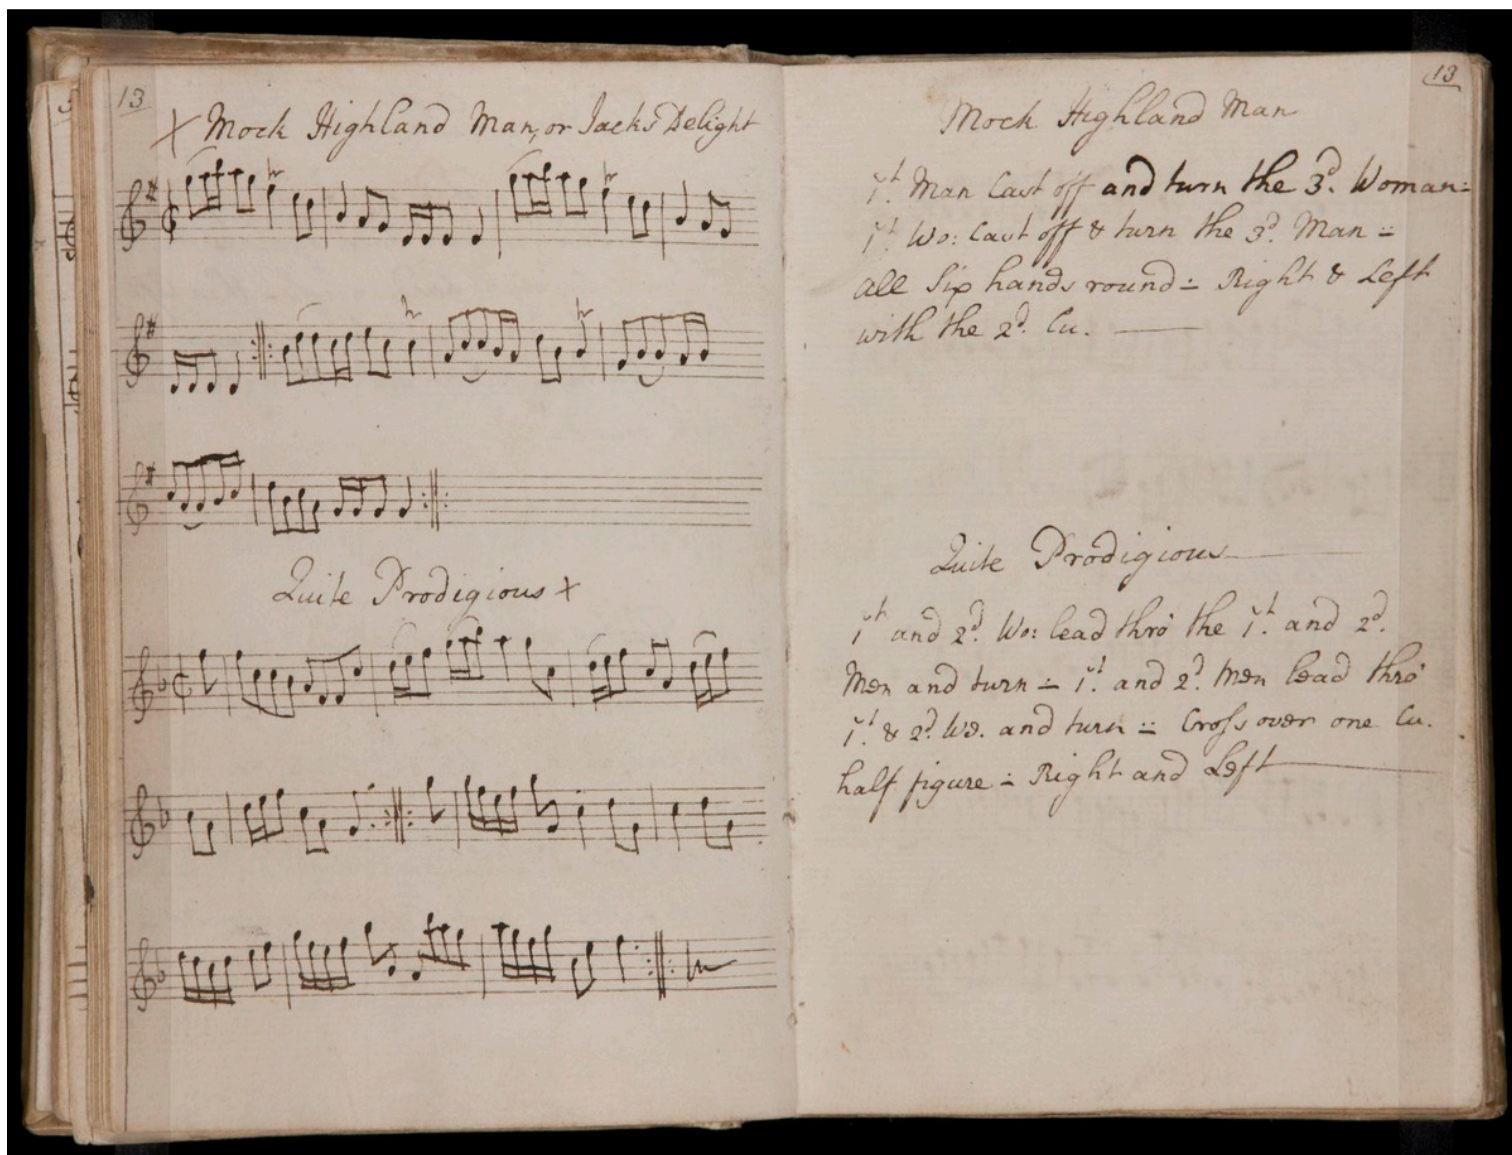 13
X Mock Highland Man, or Jacks Delight
Quite Prodigious X
13
Mock Highland Man
1st. Man Cast off and turn the 3d. Woman=
1st. Wo: Cast off & turn the 3d. Man =
all Six hands round = Right & Left
with the 2d. Cu. —
Quite Prodigious —
1st and 2d. Wo: lead thro' the 1st. and 2d.
Men and turn = 1st. and 2d. Men lead thro'
1st. & 2d. Wo. and turn = Cross over one Cu.
half figure = Right and Left —